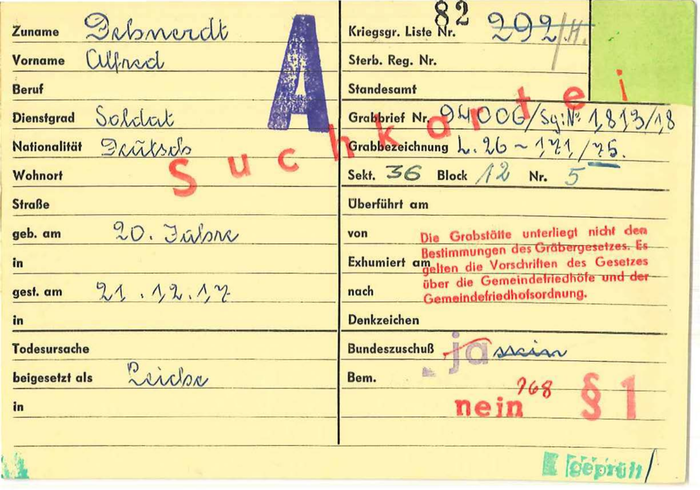 Zuname Debnerdt
Vorname Alfred
Beruf
Dienstgrad Soldat
Nationalität Deutsch
Wohnort
Straße
geb. am 20. Jahre
in
gest. am 21.12.17
in
Todesursache
beigesetzt als Leiche
in
A
Suchkartei
82
Kriegsgr. Liste Nr. 292/H.
Sterb. Reg. Nr.
Standesamt
Grabbrief Nr. 94006/Sg:No 1813/18
Grabbezeichnung L. 26-171/75.
Sekt. 36 Block 12 Nr. 5
Überführt am
von
Exhumiert am
nach
Die Grabstätte unterliegt nicht den
Bestimmungen des Gräbergesetzes. Es
gelten die Vorschriften des Gesetzes
über die Gemeindefriedhöfe und der
Gemeindefriedhofsordnung.
Denkzeichen
Bundeszuschuß ja nein
Bem.
nein 768 § 1
geprüft